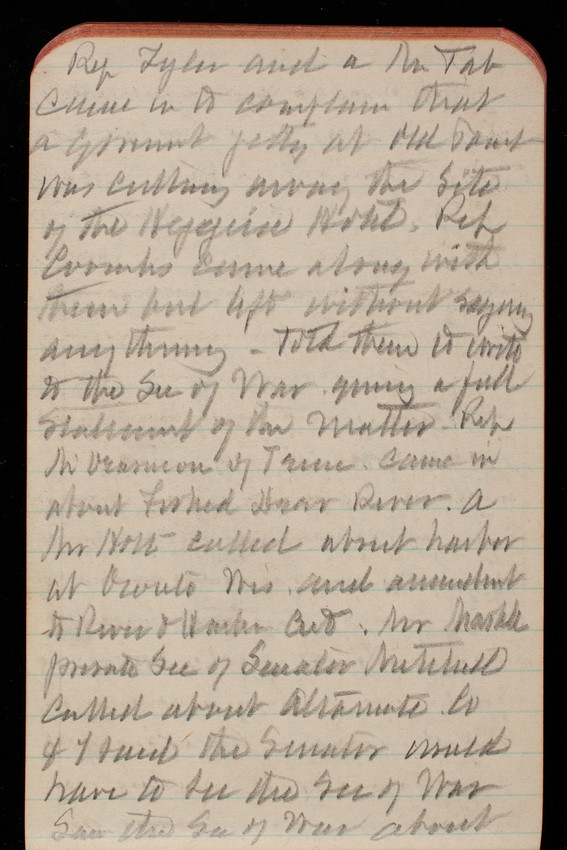 Rep Tyler and a Mr Tab
came in to complain that
a Government jetty at Old Point
was cutting away the site
of the Hygeia Hotel. Rep
Coombs came along with
them but left without saying
anything - Told them to write
to the Sec of War giving a full
statement of the matter. Rep
of Tenn. came in
about River. A
Mr Holt called about harbor
at Oconto Wis. and amendment
to River & Harbor Act. Mr
private Sec of Senator Mitchell
called about Co
& I said the Senator would
have to see the Sec of War
Saw the Sec of War about